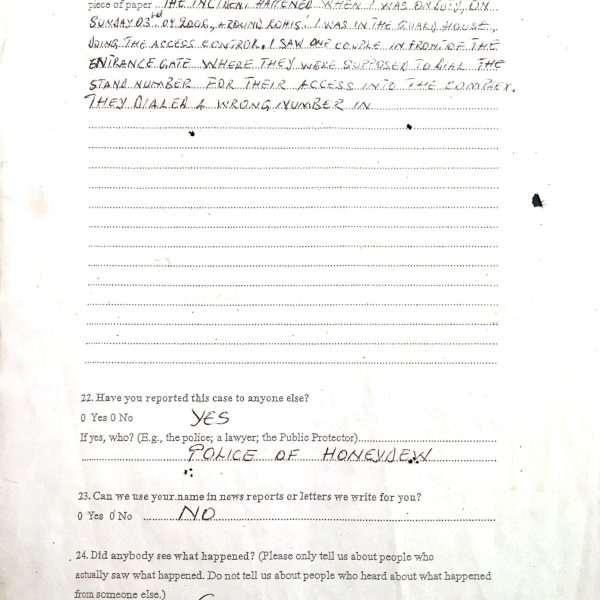 piece of paper THE INCIDENT HAPPENED WHEN I WAS ON DUTY, ON
SUNDAY 03rd 09 2006, AROUND 20H15. I WAS IN THE GUARD HOUSE,
DOING THE ACCESS CONTROL. I SAW ONE COUPLE IN FRONT OF THE
ENTRANCE GATE WHERE THEY WERE SUPPOSED TO DIAL THE
STAND NUMBER FOR THEIR ACCESS INTO THE COMPLEX.
THEY DIALED A WRONG NUMBER IN
22. Have you reported this case to anyone else?
0 Yes 0 No YES
If yes, who? (E.g., the police; a lawyer; the Public Protector)
POLICE OF HONEYDEW
23. Can we use your name in news reports or letters we write for you?
0 Yes 0 No NO
24. Did anybody see what happened? (Please only tell us about people who
actually saw what happened. Do not tell us about people who heard about what happened
from someone else.)